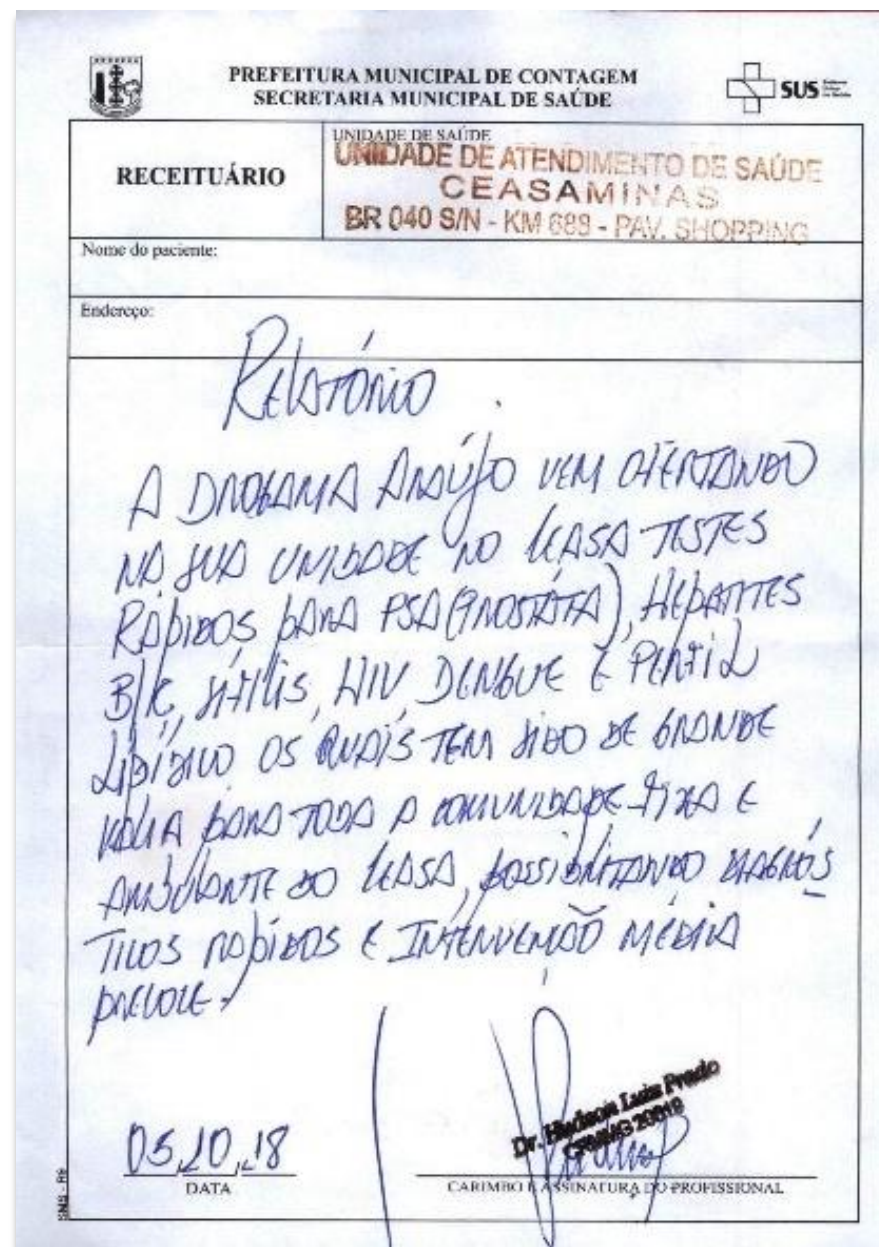 PREFEITURA MUNICIPAL DE CONTAGEM
SECRETARIA MUNICIPAL DE SAÚDE
SUS
RECEITUÁRIO
UNIDADE DE SAÚDE
UNIDADE DE ATENDIMENTO DE SAÚDE
CEASAMINAS
BR 040 S/N - KM 688 - PAV. SHOPPING
Nome do paciente:
Endereço:
RELATÓRIO
A DROGARIA ARAÚJO VEM OFERTANDO
NA SUA UNIDADE NO CEASA TESTES
RÁPIDOS PARA PSA (PROSTATA), HEPATITES
B/C, SÍFILIS, HIV, DENGUE E PERFIL
LIPÍDICO OS QUAIS TEM SIDO DE GRANDE
VALIA PARA TODA A COMUNIDADE FIXA E
AMBULANTE DO CEASA, POSSIBILITANDO DIAGNÓS
TICOS RÁPIDOS E INTERVENÇÃO MÉDICA
PRECOCE.
05,10,18
DATA
Dr. Hudson Luiz Prado
CRMMG 20819
CARIMBO E ASSINATURA DO PROFISSIONAL
SMS - R6